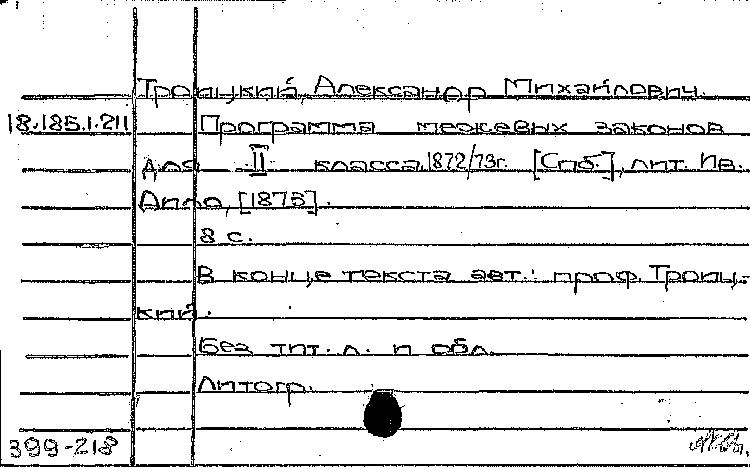 Троицкий, Александр Михайлович.
18.185.1.211 Программа межевых законов
для II класса 1872/73г. [Спб.], лит. Ив.
Дило, [1875].
8 с.
В конце текста авт.: проф. Троиц-
кий.
Без тит. л. и обл.
Литогр.
399-218